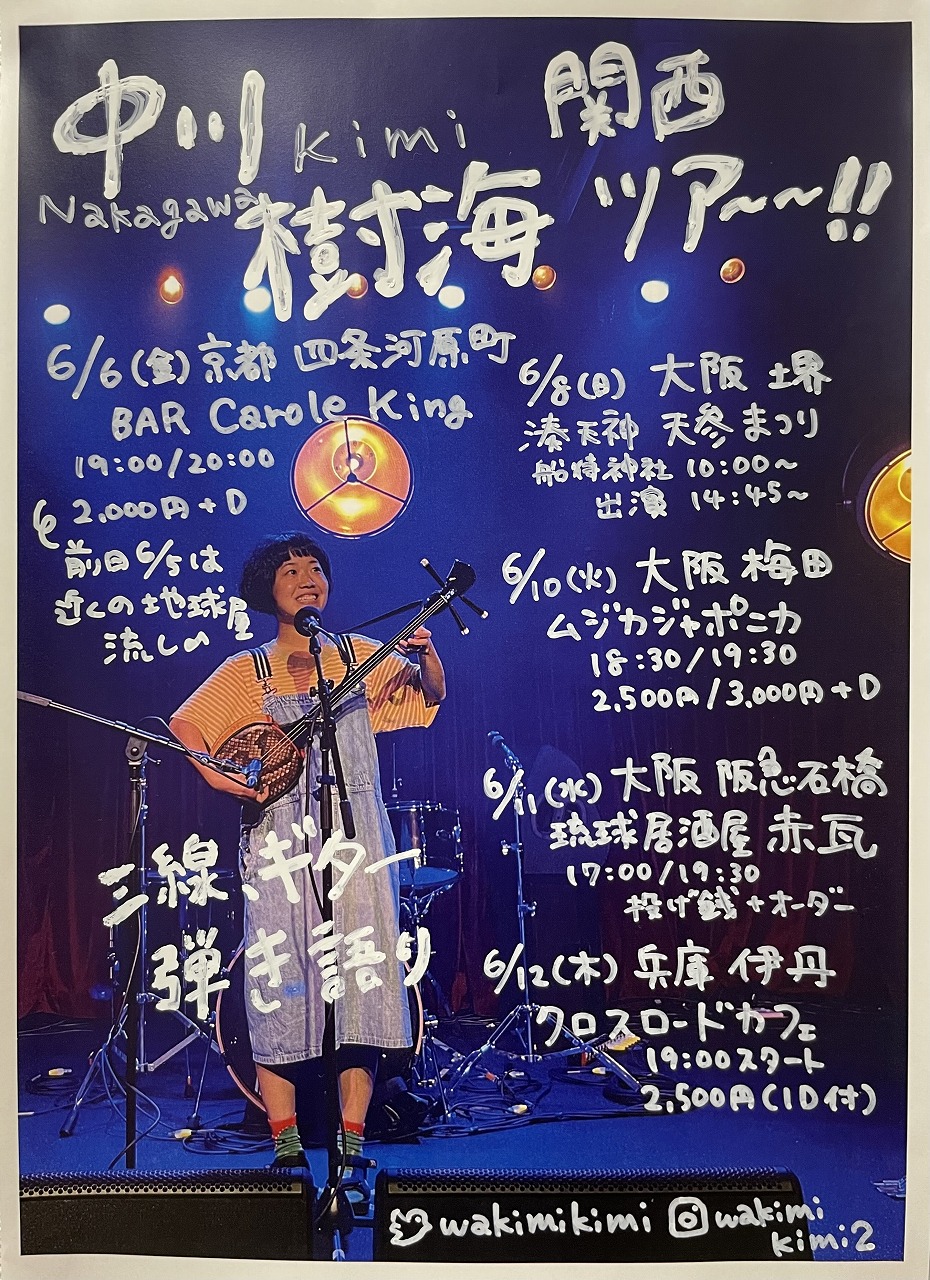 中川 kimi 関西
Nakagawa 樹海 ツアー〜〜!!
6/6(金)京都 四条河原町
BAR Carole King
19:00/20:00
2,000円+D
前日6/5は
近くの地球屋
流しの
6/8(日) 大阪 堺
湊天神 天参まつり
船待神社 10:00〜
出演 14:45〜
6/10(火) 大阪 梅田
ムジカジャポニカ
18:30/19:30
2,500円/3,000円+D
6/11(水) 大阪 阪急石橋
琉球居酒屋 赤瓦
17:00/19:30
投げ銭+オーダー
6/12(木) 兵庫 伊丹
クロスロードカフェ
19:00スタート
2,500円(1D付)
三線、ギター
弾き語り
wakimikimi wakimi
kimi2